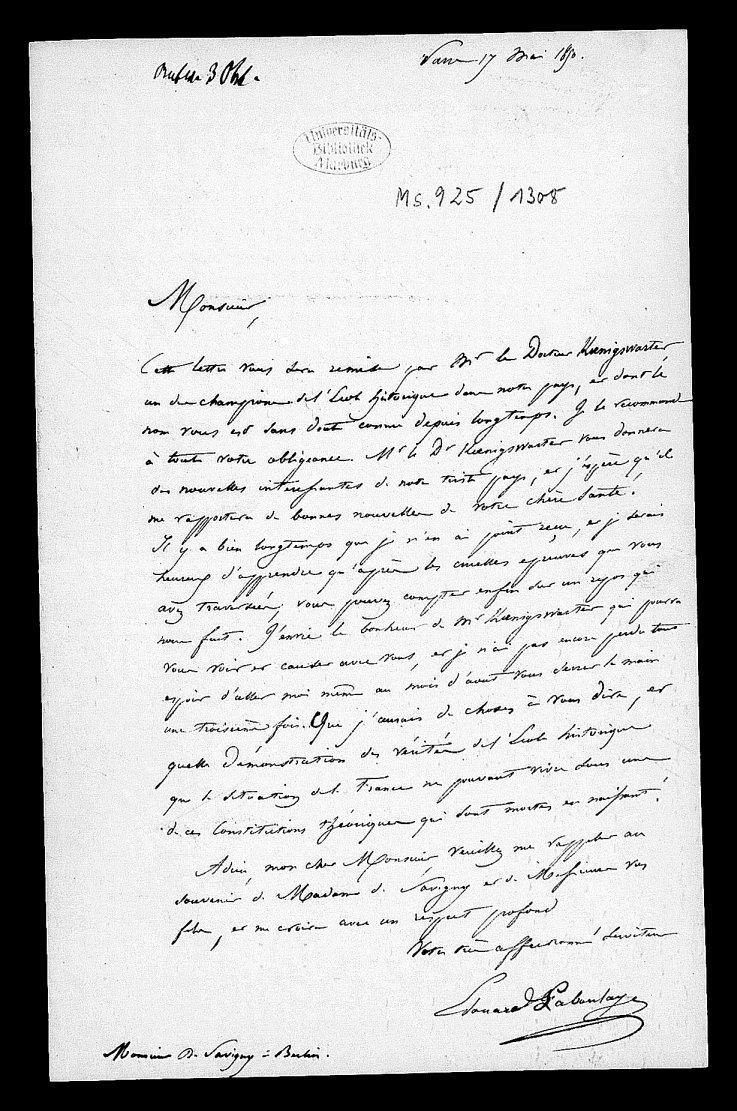 Paris 17 Mai 1850.
Universitäts-
Bibliothek
Marburg
Ms. 925 / 1308
Monsieur,
Cette lettre vous sera remise par Mr le Docteur Kœnigswarter
un des champions de l'Ecole historique dans notre pays, et dont le
nom vous est sans doute connu depuis longtemps. Je le recommande
à toute votre obligeance. Mr le Dr Kœnigswarter vous donnera
des nouvelles intéressantes de notre triste pays, et j'espère qu'il
me rapportera de bonnes nouvelles de votre chère santé.
Il y a bien longtemps que je n'en ai point reçu, et je serais
heureux d'apprendre qu'après les cruelles épreuves que vous
avez traversées, vous pouvez compter enfin sur un repos qui
vous fuit. J'envie le bonheur de Mr Kœnigswarter qui pourra
vous voir et causer avec vous, et je n'ai pas encore perdu tout
espoir d'aller moi même au mois d'août vous serrer la main
une troisième fois. Que j'aurais de choses à vous dire, et
quelle démonstration des vérités de l'Ecole historique
que la situation de la France ne pouvant vivre sous une
de ces Constitutions théoriques qui sont mortes en naissant!
Adieu, mon cher Monsieur veuillez me rappeler au
souvenir de Madame de Savigny et de Messieurs vos
fils, et me croire avec un respect profond
Votre très affectionné serviteur
Edouard Laboulaye
Monsieur de Savigny à Berlin.